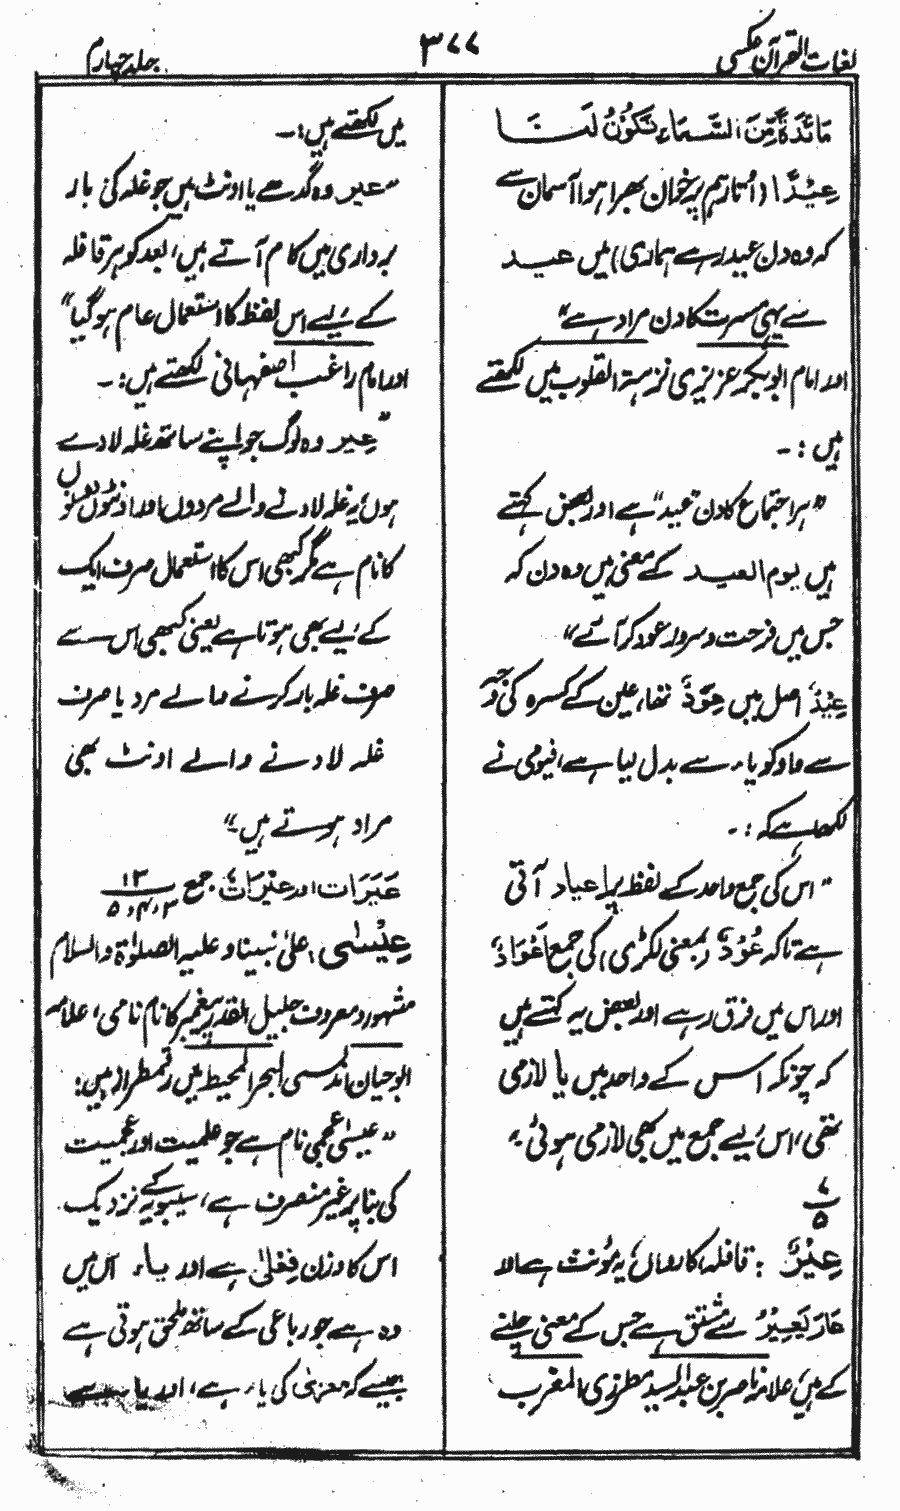 لغات القرآن عکسی
۳۷۷
جلد چہارم
مَائِدَةً مِّنَ السَّمَاءِ تَكُوْنُ لَنَا
عِيْدًا (اُتار ہم پر خوان بھرا ہوا آسمان سے
کہ وہ دن عید رہے ہماری) میں عید
سے یہی مسرت کا دن مراد ہے“
اور امام ابوبکر عزیزی نزہتہ القلوب میں لکھتے
ہیں :-
”ہر اجتماع کا دن ”عید“ ہے اور بعض کہتے
ہیں یوم العید کے معنی ہیں وہ دن کہ
جس میں فرحت و سرور عود کر آئے“
عِيْدٌ اصل میں عِوْدٌ تھا، عین کے کسرہ کی وجہ
سے واو کو یاء سے بدل لیا ہے، فیومی نے
لکھا ہے کہ :-
”اس کی جمع واحد کے لفظ پر اعیاد آتی
ہے تاکہ عُوْدٌ (بمعنی لکڑی) کی جمع اَعْوَادٌ
اور اس میں فرق رہے اور بعض یہ کہتے ہیں
کہ چونکہ اس کے واحد میں یا لازمی
تھی، اس لیے جمع میں بھی لازمی ہوئی“
۷
۵
عِيْرٌ : قافلہ، کارواں، یہ مؤنث ہے اور
عَارَ يَعِيْرُ سے مشتق ہے جس کے معنی چلنے
کے ہیں، علامہ ناصر بن عبدالسید مطرزی المغرب
میں لکھتے ہیں :-
”عیر وہ گدھے یا اونٹ ہیں جو غلہ کی بار
برداری میں کام آتے ہیں، بعد کو ہر قافلہ
کے لیے اس لفظ کا استعمال عام ہو گیا“
اور امام راغب اصفہانی لکھتے ہیں :-
”عِیر وہ لوگ جو اپنے ساتھ غلہ لادے
ہوں، یہ غلہ لادنے والے مردوں اور اونٹوں دونوں
کا نام ہے مگر کبھی اس کا استعمال صرف ایک
کے لیے بھی ہوتا ہے یعنی کبھی اس سے
صرف غلہ بار کرنے والے مرد یا صرف
غلہ لادنے والے اونٹ بھی
مراد ہوتے ہیں“
عَيَرَات اور عِيْرَاتٌ جمع ۱۳ ۳، ۴، ۵
عِیْسٰی، علیٰ نبینا و علیہ الصلوٰۃ والسلام
مشہور و معروف جلیل القدر پیغمبر کا نام نامی، علامہ
ابو حیان اندلسی البحر المحیط میں رقمطراز ہیں:
”عیسیٰ عجمی نام ہے جو علمیت اور عجمیت
کی بنا پر غیر منصرف ہے، سیبویہ کے نزدیک
اس کا وزن فِعْلیٰ ہے اور یاء اس میں
وہ ہے جو رباعی کے ساتھ ملحق ہوتی ہے
جیسے کہ معزیٰ کی یاء ہے، اور یاء سے